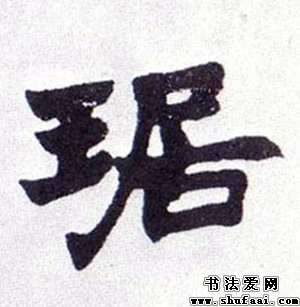 琚
书法爱网
www.shufaai.com